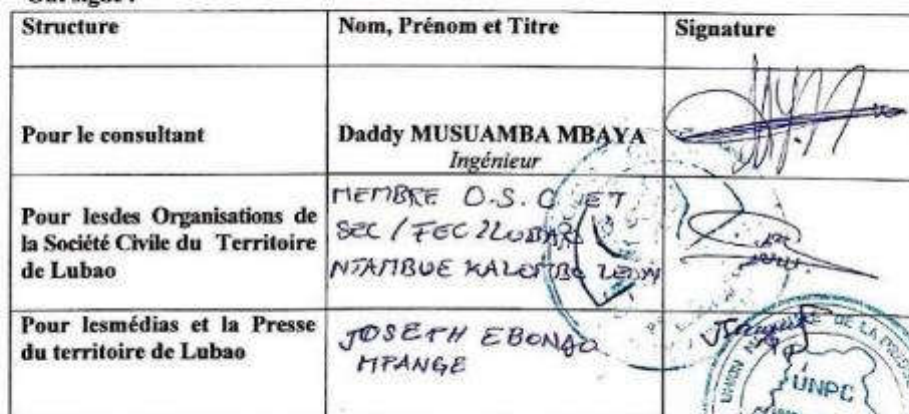 Structure
Nom, Prénom et Titre
Signature
Pour le consultant
Daddy MUSUAMBA MBAYA
Ingénieur
Pour lesdes Organisations de
la Société Civile du Territoire
de Lubao
MEMBRE O.S.C ET
SEC / FEC
KALOMBO
Pour lesmédias et la Presse
du territoire de Lubao
JOSEPH EBONGO
MPANGE
UNION DE LA PRESSE
UNPC